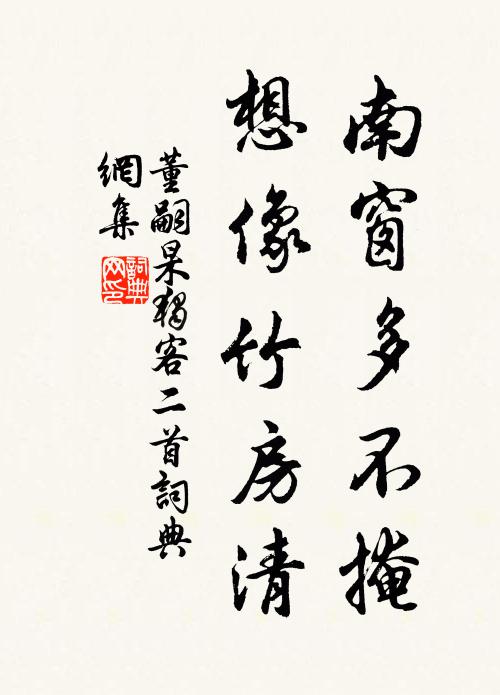 南窗多不掩
想像竹房清
董嗣杲獨客二首詞典
網集
詞典網印